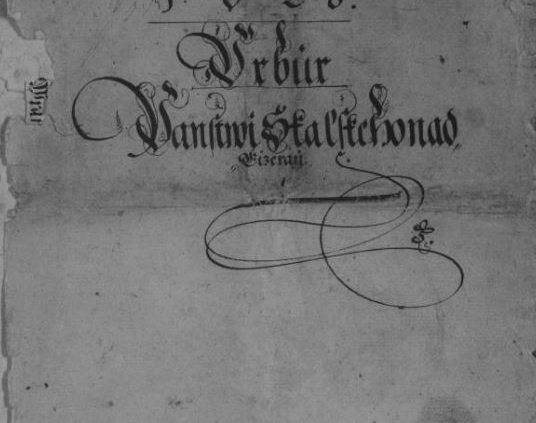 Vrbür
Panstwi Skalskeho nad
Gizerau